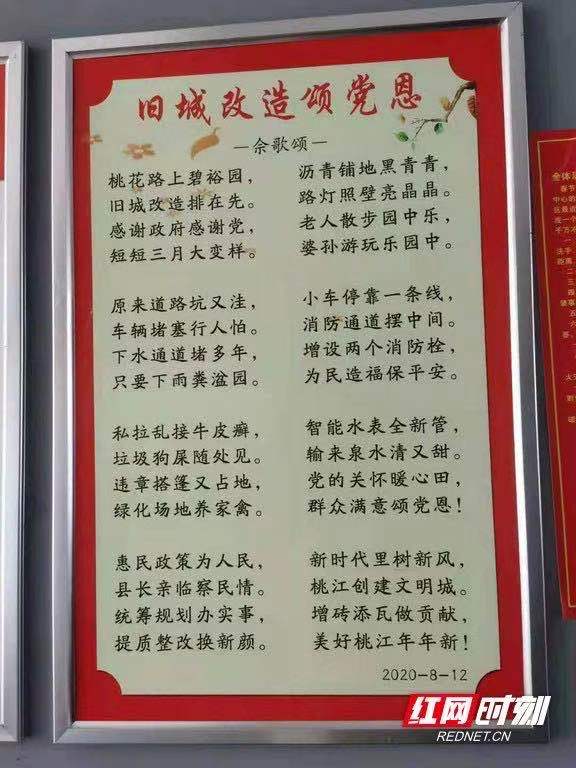 旧城改造颂党恩
—佘歌颂—
桃花路上碧裕园，
旧城改造排在先。
感谢政府感谢党，
短短三月大变样。
原来道路坑又洼，
车辆堵塞行人怕。
下水通道堵多年，
只要下雨粪溢园。
私拉乱接牛皮癣，
垃圾狗屎随处见。
违章搭篷又占地，
绿化场地养家禽。
惠民政策为人民，
县长亲临察民情。
统筹规划办实事，
提质整改换新颜。
沥青铺地黑青青，
路灯照壁亮晶晶。
老人散步园中乐，
婆孙游玩乐园中。
小车停靠一条线，
消防通道摆中间。
增设两个消防栓，
为民造福保平安。
智能水表全新管，
输来泉水清又甜。
党的关怀暖心田，
群众满意颂党恩！
新时代里树新风，
桃江创建文明城。
增砖添瓦做贡献，
美好桃江年年新！
2020-8-12
全体
春节
中心的
红网时刻
REDNET.CN